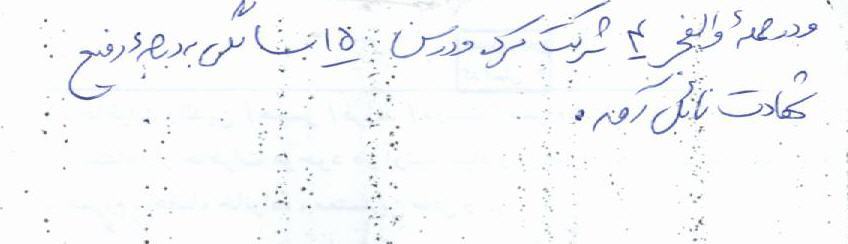 ودر حملهٔ والفجر ۴ شرکت کرد ودرسن ۱۵ سالگی به درجهٔ رفیع
شهادت نائل آمد.